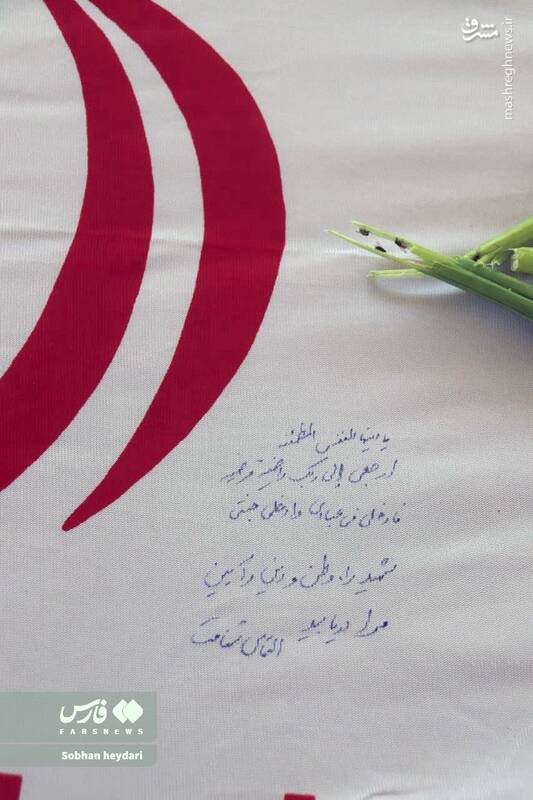 مشرق
mashreghnews.ir
یا ایتها النفس المطمئنه
ارجعی إلی ربک راضیة مرضیه
فادخلی فی عبادی وادخلی جنتی
شهید راه وطن و دین و آیین
مرا دریابید التماس شفاعت
فارس
FARSNEWS
Sobhan heydari